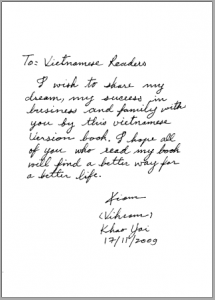 To: Vietnamese Readers
I wish to share my
dream, my success in
business and family with
you by this vietnamese
version book. I hope all
of you who read my book
will find a better way for
a better life.
(Vikrom)
Khao Yai
17/11/2009